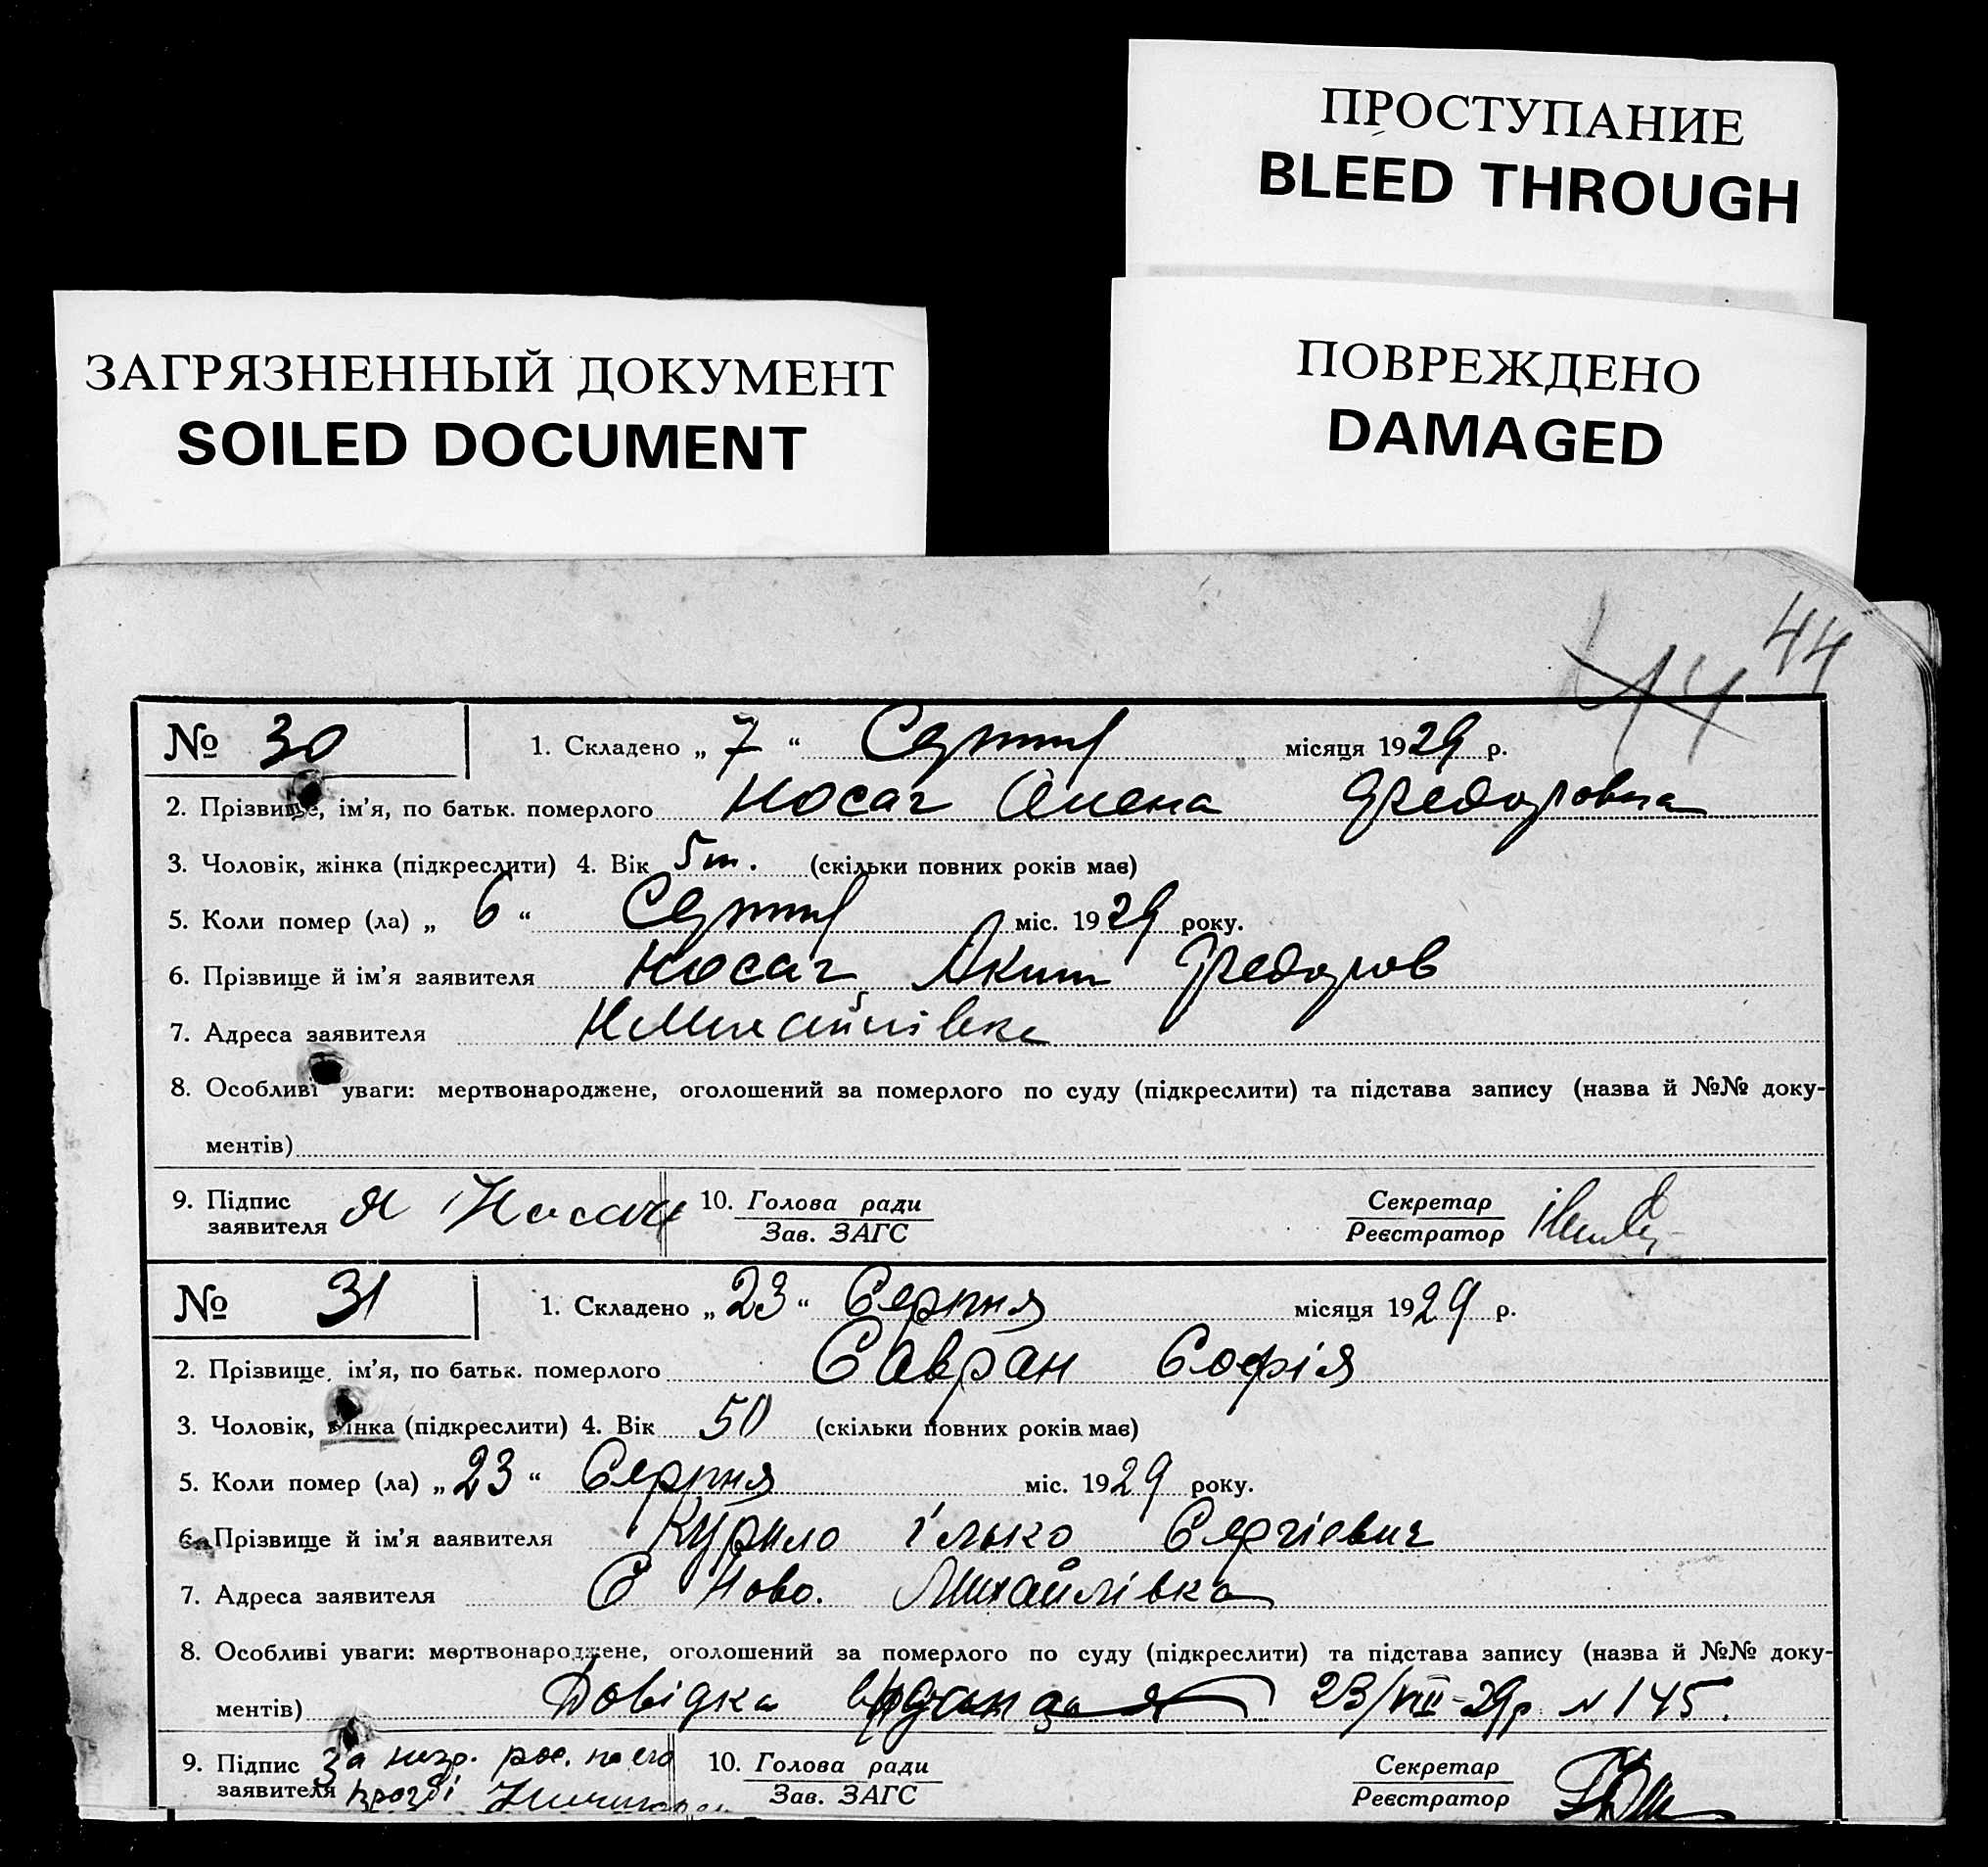 ПРОСТУПАНИЕ
BLEED THROUGH
ЗАГРЯЗНЕННЫЙ ДОКУМЕНТ
SOILED DOCUMENT
ПОВРЕЖДЕНО
DAMAGED
44
44
№ 30 1. Складено „ 7 “ Серпня місяця 1929 р.
2. Прізвище, ім'я, по батьк. померлого Носач Олена Федоровна
3. Чоловік, жінка (підкреслити) 4. Вік 5 м. (скільки повних років має)
5. Коли помер (ла) „ 6 “ Серпня міс. 1929 року.
6. Прізвище й ім'я заявителя Носач Яким Федоров
7. Адреса заявителя Н Михайлівка
8. Особливі уваги: мертвонароджене, оголошений за померлого по суду (підкреслити) та підстава запису (назва й №№ доку-
ментів)
9. Підпис заявителя Я Носач 10. Голова ради Зав. ЗАГС Секретар Реєстратор
№ 31 1. Складено „ 23 “ Серпня місяця 1929 р.
2. Прізвище, ім'я, по батьк. померлого Савран Софія
3. Чоловік, жінка (підкреслити) 4. Вік 50 (скільки повних років має)
5. Коли помер (ла) „ 23 “ Серпня міс. 1929 року.
6. Прізвище й ім'я заявителя Курило Ілько Сергієвич
7. Адреса заявителя С Ново. Михайлівка
8. Особливі уваги: мертвонароджене, оголошений за померлого по суду (підкреслити) та підстава запису (назва й №№ доку-
ментів) Довідка 23/VIII-29р N 145.
9. Підпис заявителя За незр. рос. по его прозбі 10. Голова ради Зав. ЗАГС Секретар Реєстратор